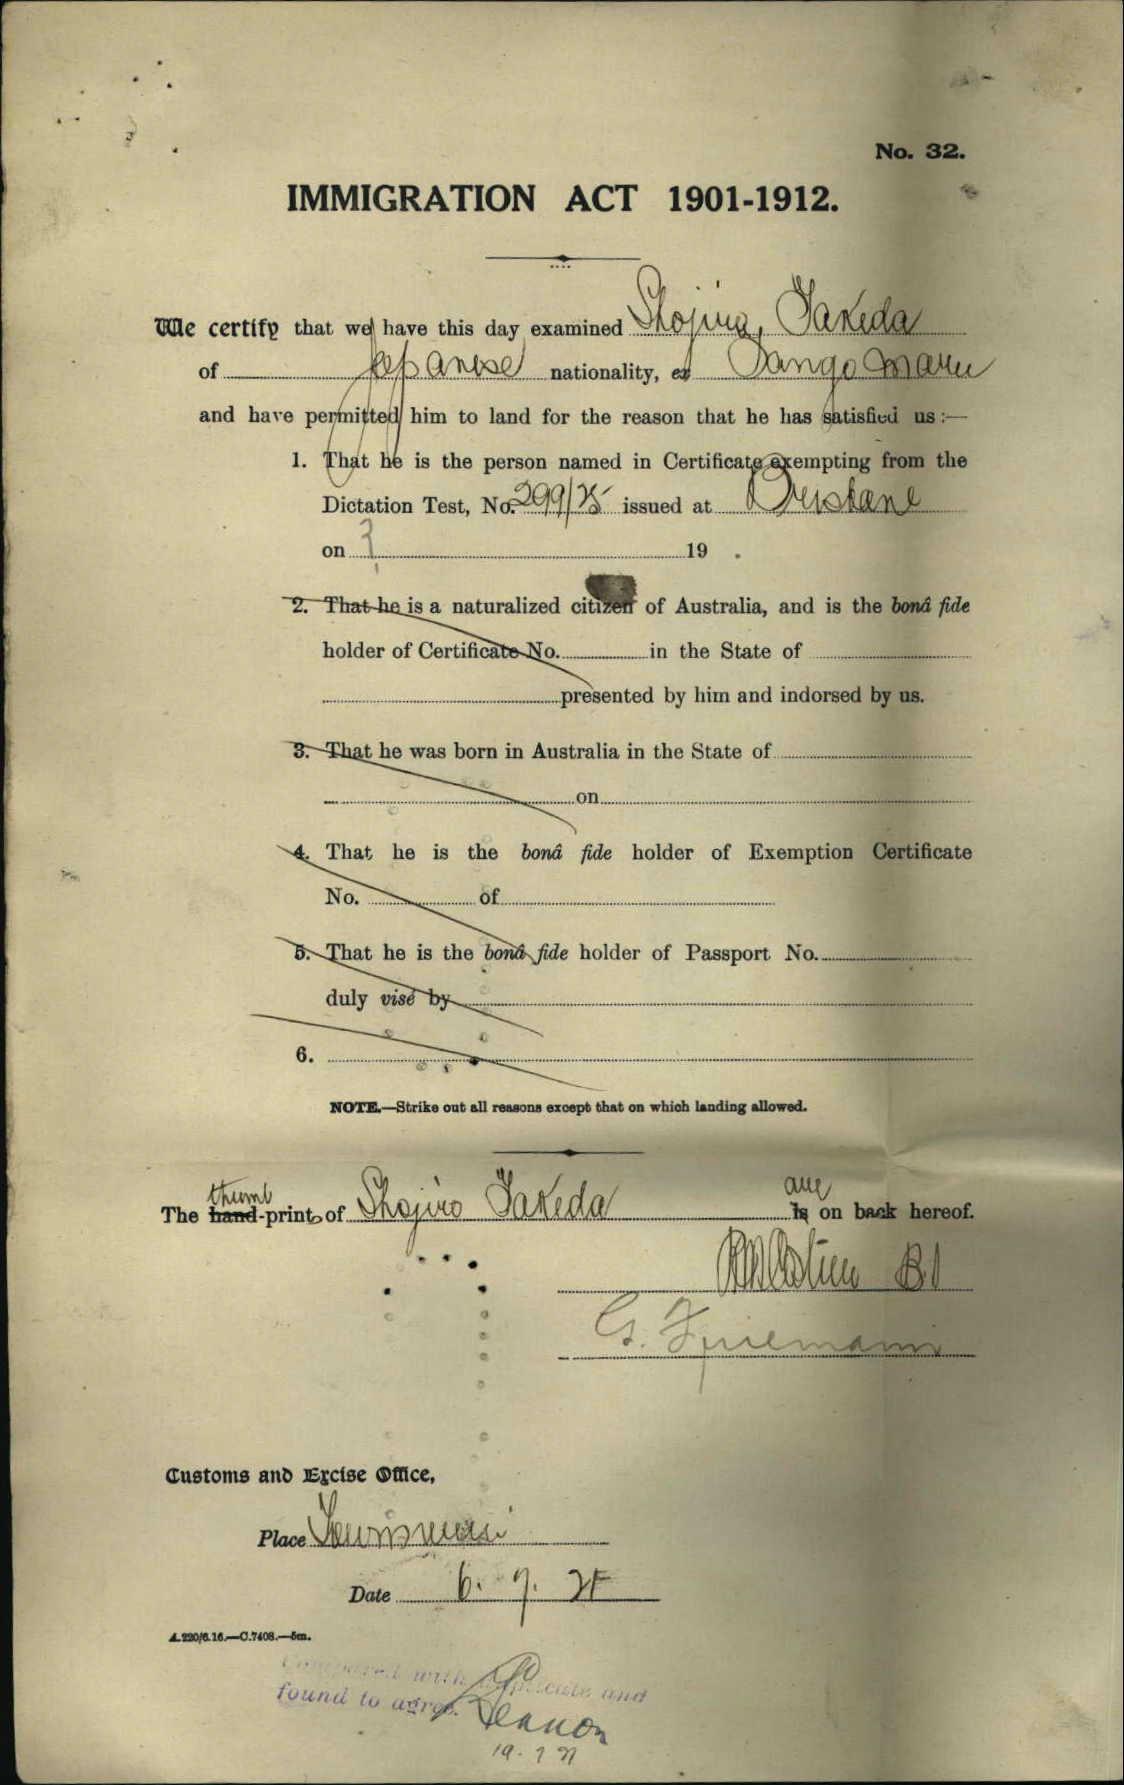 No. 32.
IMMIGRATION ACT 1901-1912.
We certify that we have this day examined Shojiro, Takeda
of Japanese nationality, ex Tango Maru
and have permitted him to land for the reason that he has satisfied us:—
1. That he is the person named in Certificate exempting from the
Dictation Test, No. 299/25 issued at Brisbane
on 19 .
2. That he is a naturalized citizen of Australia, and is the bonâ fide
holder of Certificate No. in the State of
presented by him and indorsed by us.
3. That he was born in Australia in the State of
on
4. That he is the bonâ fide holder of Exemption Certificate
No. of
5. That he is the bonâ fide holder of Passport No.
duly visé by
6.
NOTE.—Strike out all reasons except that on which landing allowed.
thumb are
The hand-prints of Shojiro Takeda is on back hereof.
G.
Customs and Excise Office,
Place
Date 6. 7.
A.220/6.16.—C.7408.—5m.
Compared with duplicate and
found to agree.
19. 7